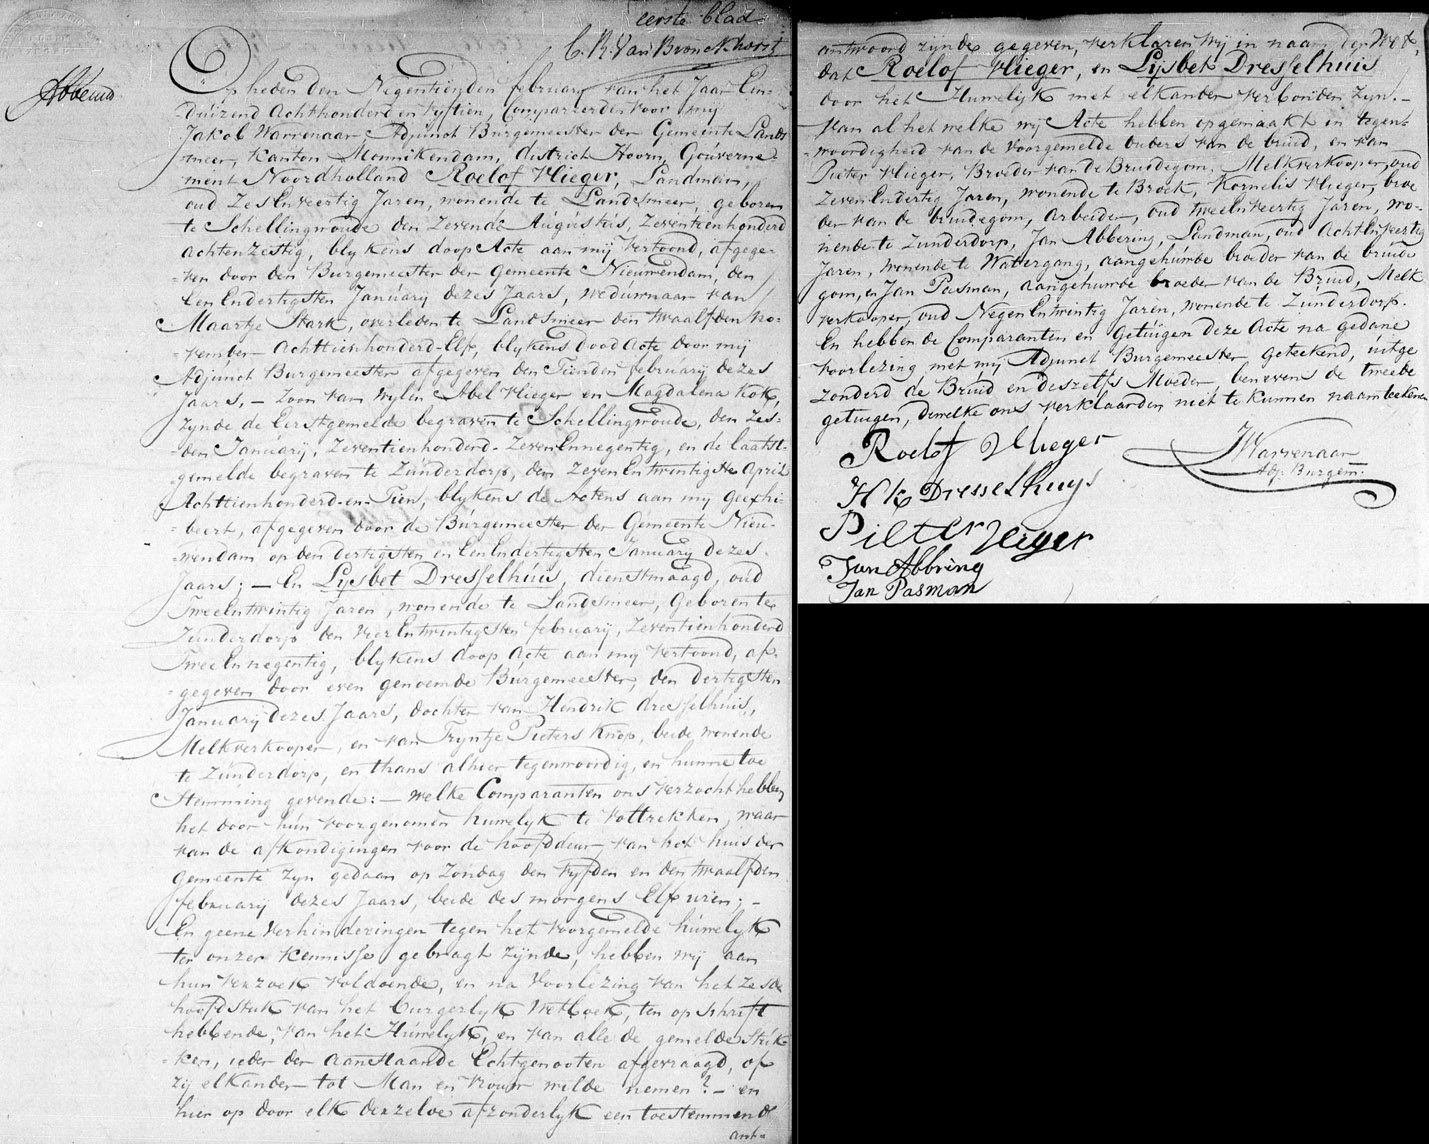 eerste blad
C. R. Van Bronckhorst
Op heden den Negentienden februarij van het Jaar Een-
duizend Achthonderd en vyftien, Compareerden voor mij
Jakob Warrenaar Adjunct Burgemeester der Gemeente Lands
meer, Kanton Monnikendam, district Hoorn, Gouverne-
ment Noordholland Roelof Vlieger, Landman,
oud ZesEnveertig Jaren, wonende te Landsmeer, geboren
te Schellingwoude den Zevende Augustus, Zeventienhonderd
achtenzestig, blykens doop Acte aan mij vertoond, afgege-
ven door den Burgemeester der Gemeente Nieuwendam, den
EenEndertigsten Januarij dezes Jaars, weduwnaar van
Maartje Stark, overleden te Landsmeer den twaalfden No-
vember Achttienhonderd-Elf, blykens dood Acte door mij
Adjunct Burgemeester afgegeven den Tienden february dezes
Jaars, – Zoon van wylen Abel Vlieger en Magdalena Kok,
zynde de Eerstgemelde begraven te Schellingwoude, den Zes-
den Januarij, Zeventienhonderd-ZevenEnnegentig, en de laatst-
gemelde begraven te Zunderdorp, den ZevenEntwintigste April
Achttienhonderd-en-Tien, blykens de Actens aan my geexhi-
beert, afgegeven door de Burgemeester der Gemeente Nieu-
wendam op den dertigsten en EenEndertigsten Januarij dezes
Jaars; – En Lysbet Dresselhuis, dienstmaagd, oud
TweeEntwintig Jaren, wonende te Landsmeer, Geboren te
Zunderdorp den VierEntwintigsten february, Zeventienhonderd
TweeEnnegentig, blykens doop Acte aan my vertoond, af-
gegeven door even genoemde Burgemeester, den dertigsten
Januarij dezes Jaars, dochter van Hendrik dresselhuis,
Melkverkooper, en van Tryntje Pieters Knop, beide wonende
te Zunderdorp, en thans alhier tegenwoordig, en hunne toe
stemming gevende: – welke Comparanten ons verzocht hebben
het door hun voorgenomen huwelyk te voltrekken, waar
van de afkondigingen voor de hoofddeur van het huis der
Gemeente zyn gedaan op Zondag den vyfden en den twaalfden
februarij dezes Jaars, beide des morgens Elf uren; –
En geene verhinderingen tegen het voorgemelde huwelyk
ter onzer kennisse gebragt zynde, hebben wij aan
hun verzoek voldoende, en na voorlezing van het zesde
hoofdstuk van het Burgerlyk Wetboek, ten opschrift
hebbende, van het Huwelyk, en van alle de gemelde stuk-
ken, ieder der aanstaande Echtgenooten afgevraagd, of
zij elkander tot Man en vrouw wilde nemen? – en
hier op door elk denzelve afzonderlyk een toestemmend
ant-
antwoord zynde gegeven, verklaren Wij in naam der Wet,
dat Roelof Vlieger, en Lysbet Dresselhuis
door het Huwelijk met elkander verbonden zyn. –
Van al het welke wij Acte hebben opgemaakt in tegen-
woordigheid van de voorgemelde ouders van de bruid, en van
Pieter Vlieger, Broeder van de Bruidegom, Melkverkooper, oud
ZevenEndertig Jaren, wonende te Broek, Kornelis Vlieger, broe
der van de bruidegom, Arbeider, oud tweeEnveertig Jaren, wo-
nende te Zunderdorp, Jan Abbering, Landman, oud AchtEnveertig
Jaren, wonende te Watergang, aangehuwde broeder van de bruide
gom, en Jan Pasman, aangehuwde broeder van de Bruid, Melk
verkooper, oud NegenEntwintig Jaren, wonende te Zunderdorp.
En hebben de Comparanten en Getuigen deze Acte na gedane
voorlezing met my Adjunct Burgemeester geteekend, uitge
zonderd de Bruid en deszelfs Moeder, benevens de tweede
getuigen, dewelke ons verklaarden niet te kunnen naamteekenen
Roelof Vlieger
JWarrenaar
Adj. Burgem:
H K Dresselhuys
Pieter Vlieger
Jan Abbring
Jan Pasman